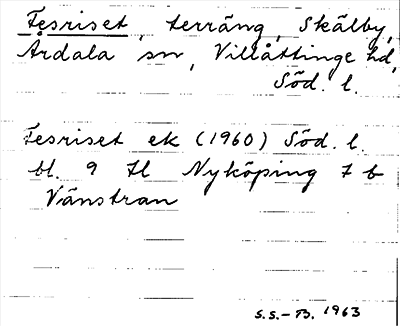 Fesriset, terräng, Skälby,
Årdala sn, Villåttinge hd,
Söd. l.
Fesriset ek (1960) Söd. l.
bl. 9 Il Nyköping 7 b
Vänstran
S.S.-B. 1963